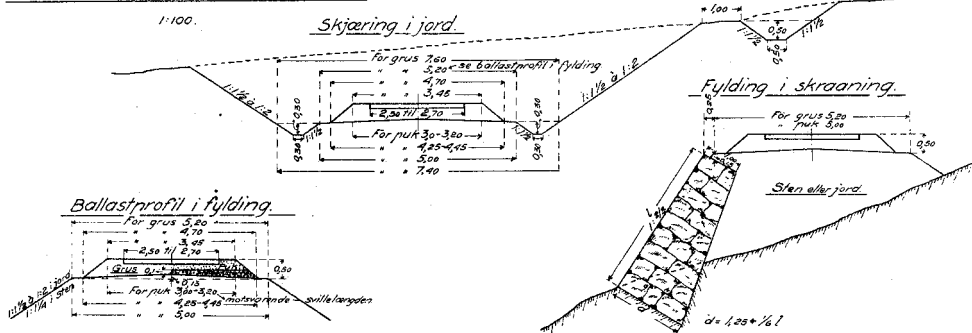 1:100.
Skjæring i jord.
For grus 7,60
" " 5,20 se ballastprofil i fylding
" " 4,70
" " 3,45
2,50 til 2,70
For puk 3,0-3,20
" " 4,25-4,45
" " 5,00
" " 7,40
1:1½ à 1:2
0,30
0,30
1:1½
1:1½
0,30
0,30
1:1½ à 1:2
1,00
0,50
0,50
1:1½
1:1½
Fylding i skraaning.
0,25
For grus 5,20
" puk 5,00
0,50
1,00
Sten eller jord.
L
d
d = 1,25 + 1/6 l
Ballastprofil i fylding.
For grus 5,20
" " 4,70
" " 3,45
2,50 til 2,70
Grus
0,15
0,50
For puk 3,00-3,20
" " 4,25-4,45 motsvarende svillelængden
" " 5,00
1:1½ à 1:2 i jord
1:1¼ i sten